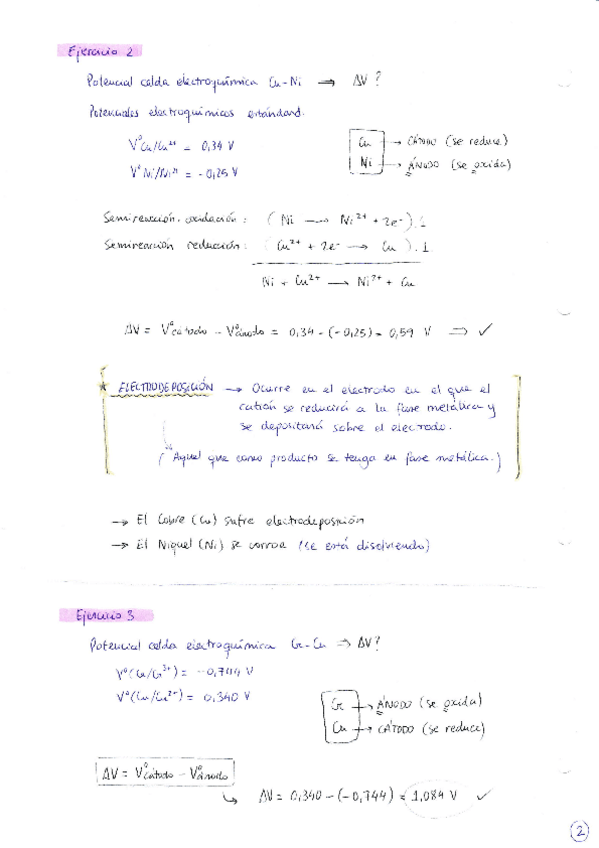 Ejercicio 2
Potencial celda electroquímica Cu-Ni → ΔV?
Potenciales electroquímicos estándard.
V°Cu/Cu²⁺ = 0,34 V
V°Ni/Ni²⁺ = -0,25 V
Cu → CÁTODO (se reduce)
Ni → ÁNODO (se oxida)
Semireacción oxidación: (Ni → Ni²⁺ + 2e⁻).1
Semireacción reducción: (Cu²⁺ + 2e⁻ → Cu).1
Ni + Cu²⁺ → Ni²⁺ + Cu
ΔV = V°cátodo - V°ánodo = 0,34 - (-0,25) = 0,59 V ⇒ ✓
* ELECTRODEPOSICIÓN → Ocurre en el electrodo en el que el
catión se reducirá a la fase metálica y
se depositará sobre el electrodo.
(Aquel que como producto se tenga en fase metálica.)
→ El Cobre (Cu) sufre electrodeposición
→ El Niquel (Ni) se corroe (se está disolviendo)
Ejercicio 3
Potencial celda electroquímica Cr-Cu ⇒ ΔV?
V°(Cr/Cr³⁺) = -0,744 V
V°(Cu/Cu²⁺) = 0,340 V
Cr → ÁNODO (se oxida)
Cu → CÁTODO (se reduce)
ΔV = V°cátodo - V°ánodo
ΔV = 0,340 - (-0,744) = 1,084 V ✓
2